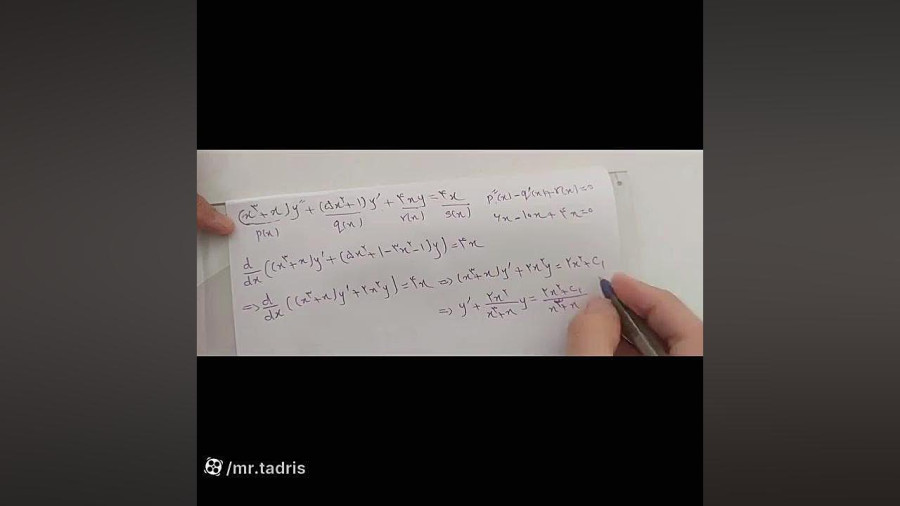 (x³+x)y″ + (۵x²+۱)y′ + ۴xy = ۴x
p(x) q(x) r(x) s(x)
p″(x) - q′(x) + r(x) = ۰
۶x - ۱۰x + ۴x = ۰
d/dx ((x³+x)y′ + (۵x²+۱-۳x²-۱)y) = ۴x
⇒ d/dx ((x³+x)y′ + ۲x²y) = ۴x ⇒ (x³+x)y′ + ۲x²y = ۲x² + C₁
⇒ y′ + ۲x²/(x³+x) y = (۲x²+C₁)/(x³+x)
/mr.tadris